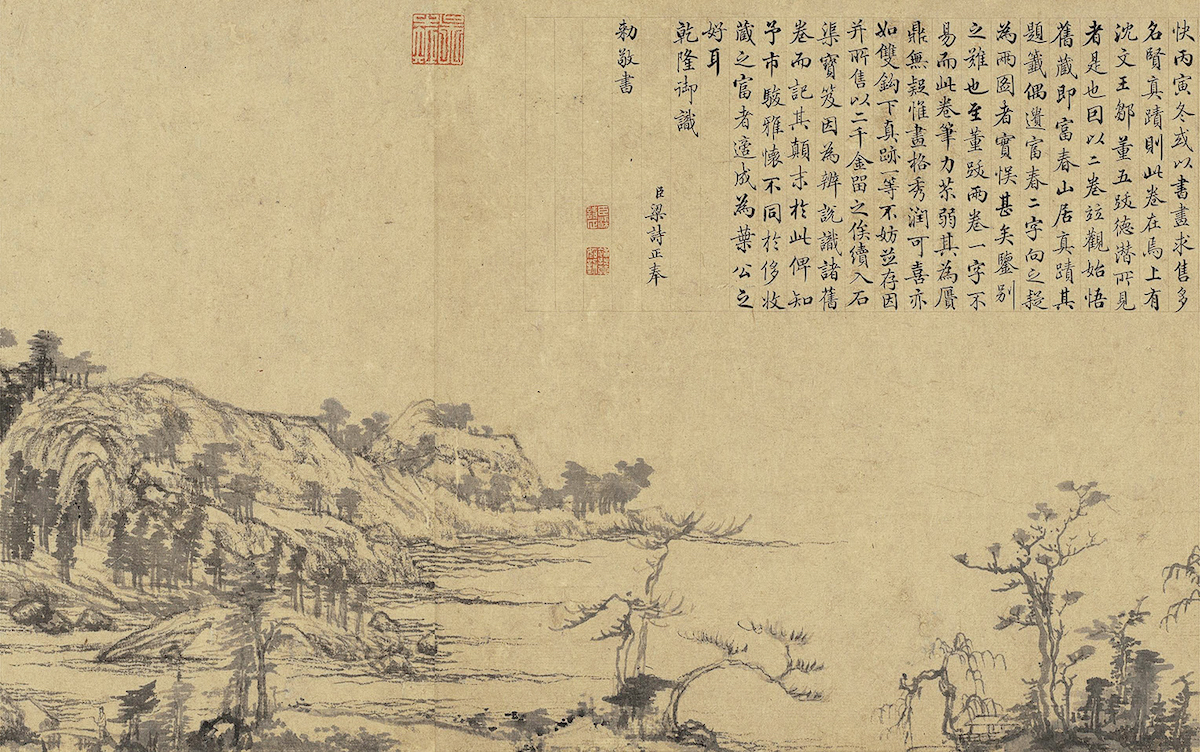 快丙寅冬或以書畫求售多
名賢真蹟則此卷在焉上有
沈文王鄒董五跋德潛所見
者是也因以二卷竝觀始悟
舊藏即富春山居真蹟其
題籤偶遺富春二字向之疑
為兩圖者實悞甚矣鑒別
之難也至董跋兩卷一字不
易而此卷筆力苶弱其為贋
鼎無疑惟畫格秀潤可喜亦
如雙鈎下真跡一等不妨並存因
并所售以二千金留之俟續入石
渠寶笈因為辨說識諸舊
卷而記其顛末於此俾知
予市駿雅懷不同於侈收
藏之富者適成為葉公之
好耳
乾隆御識
臣梁詩正奉
勅敬書